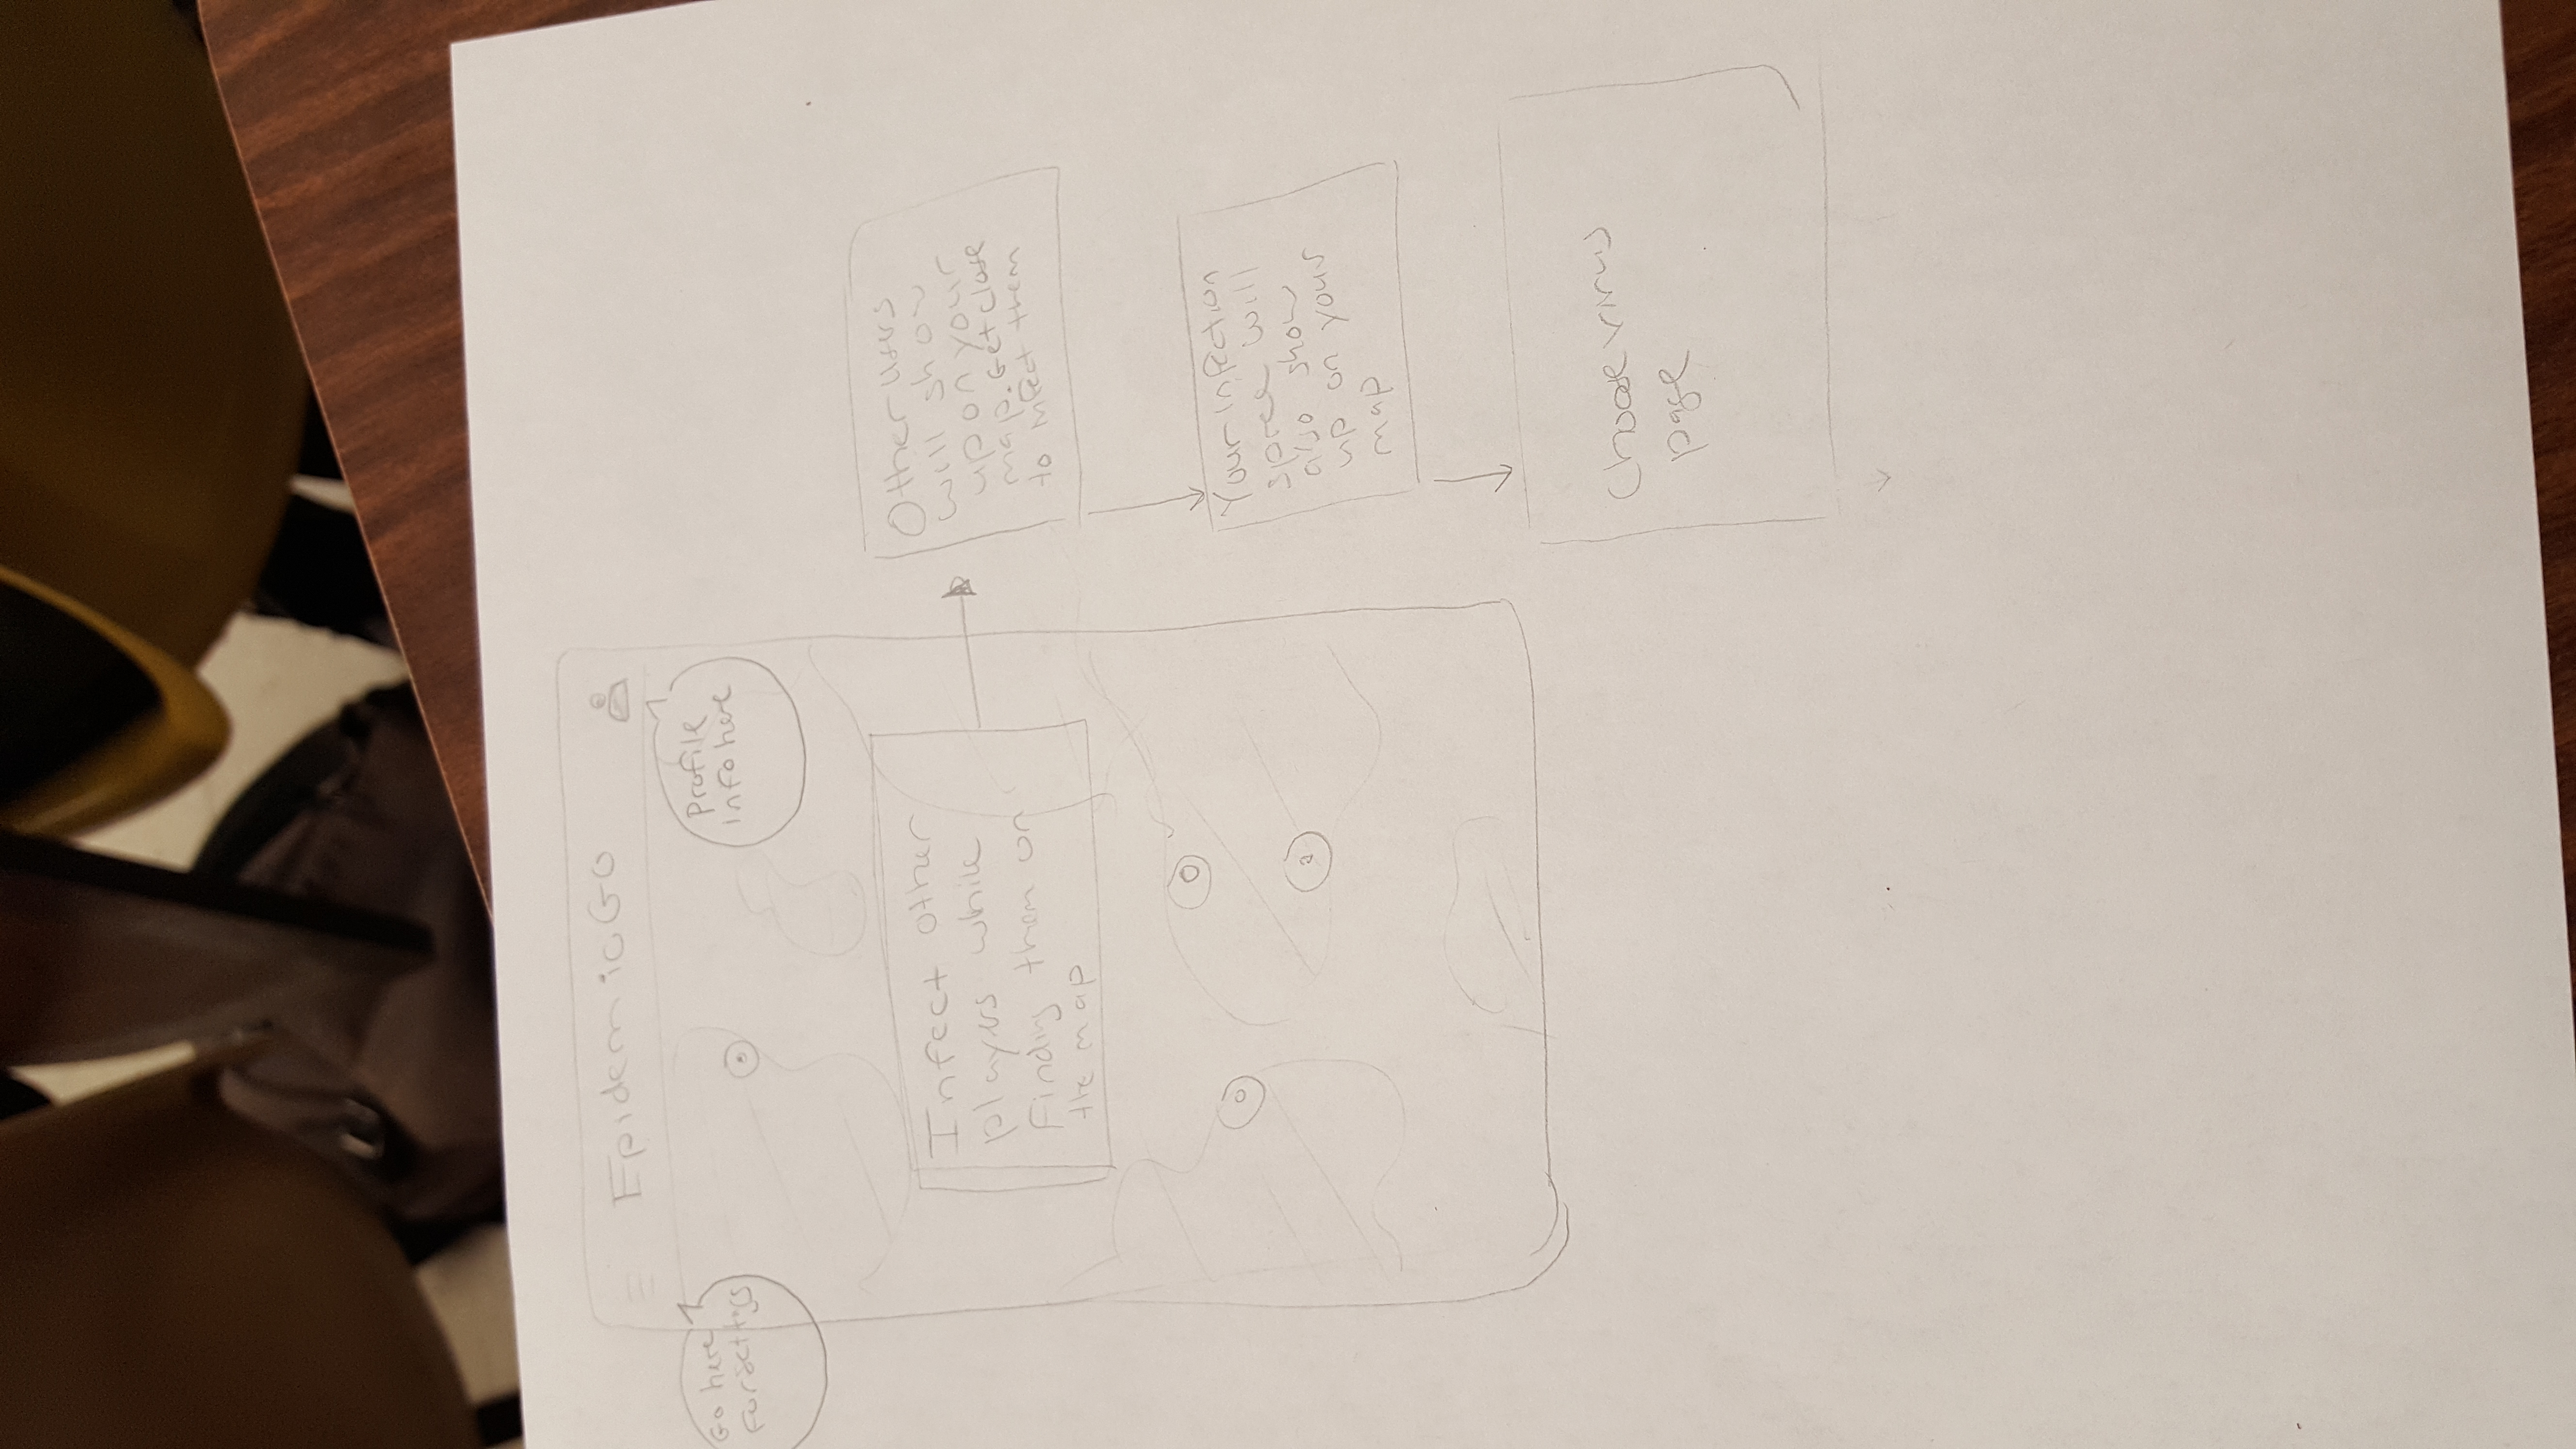 EpidemicGo
Go here
for settigs
Profile
info here
Infect other
players while
finding them on
the map
Other users
will show
up on your
map. Get close
to infect them
Your infection
spree will
also show
up on your
map
Choose virus
page